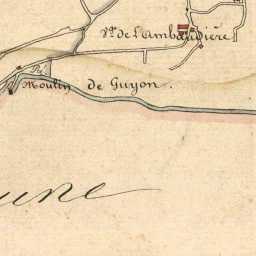 Vge. de L'Ambaudière
Moulin de Guyon.
une